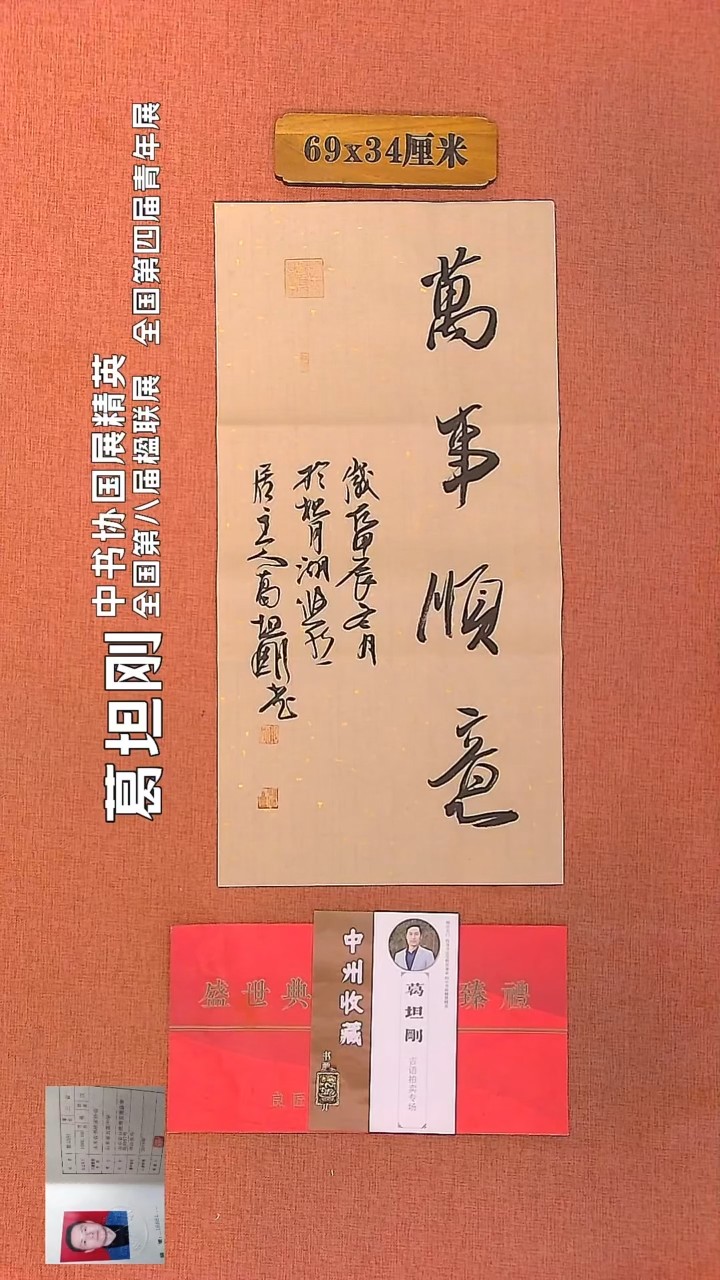 69x34厘米
萬事順意
歲在甲辰冬月
居主人葛坦剛书
葛坦刚
中书协国展精英
全国第八届楹联展 全国第四届青年展
盛世典
臻禮
中州收藏
葛坦剛
吉语拍卖专场
良匠